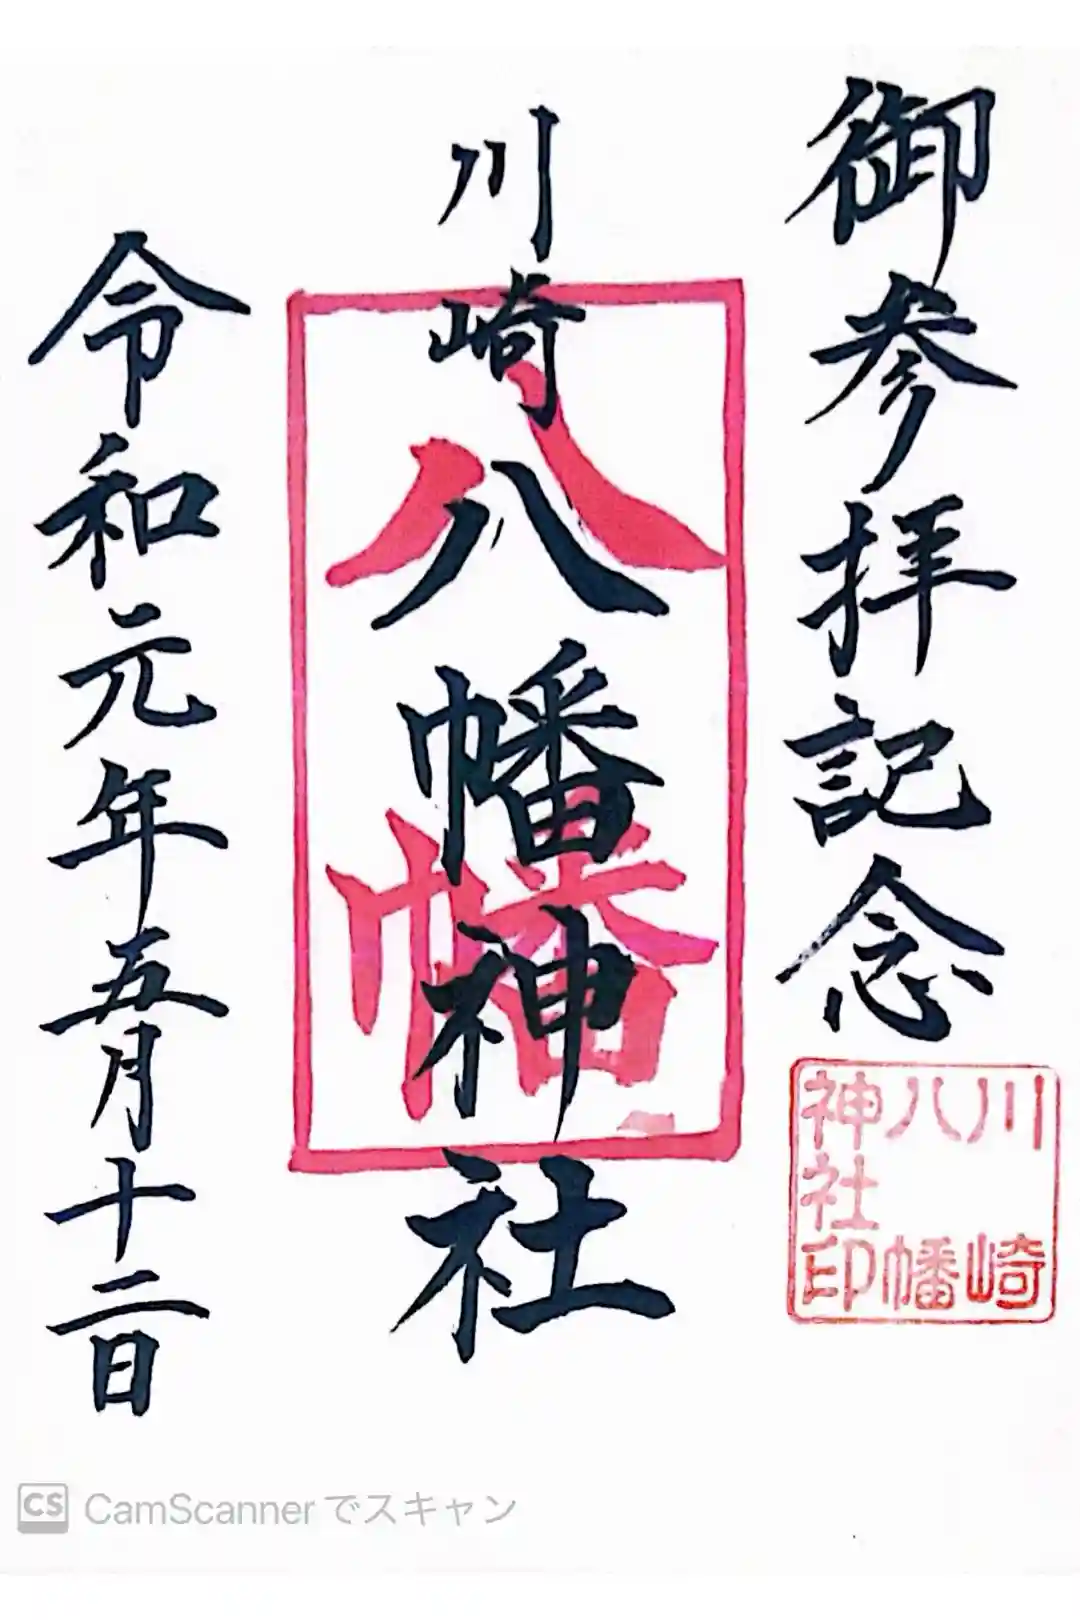 御参拝記念
川崎八幡神社
令和元年五月十二日
八幡
川崎
八幡
神社印
CS CamScanner でスキャン